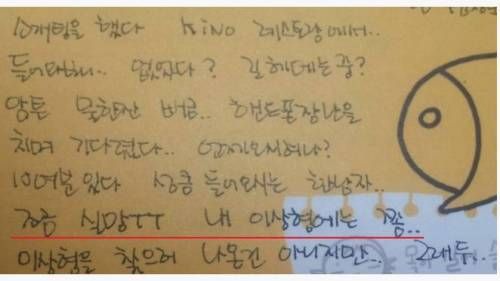 소개팅을 했다 KINO 레스토랑에서..
들어와하니.. 없었다?
암튼 목한잔 버큼.. 핸드폰장난을
치며 기다렸다.. 언제오시려나?
10여분 있다 성큼 들어오시는 한남자..
조금 실망ㅜㅜ 내 이상형에는 쫌..
이상형을 찾으러 나온건 아니지만.. 그래두..